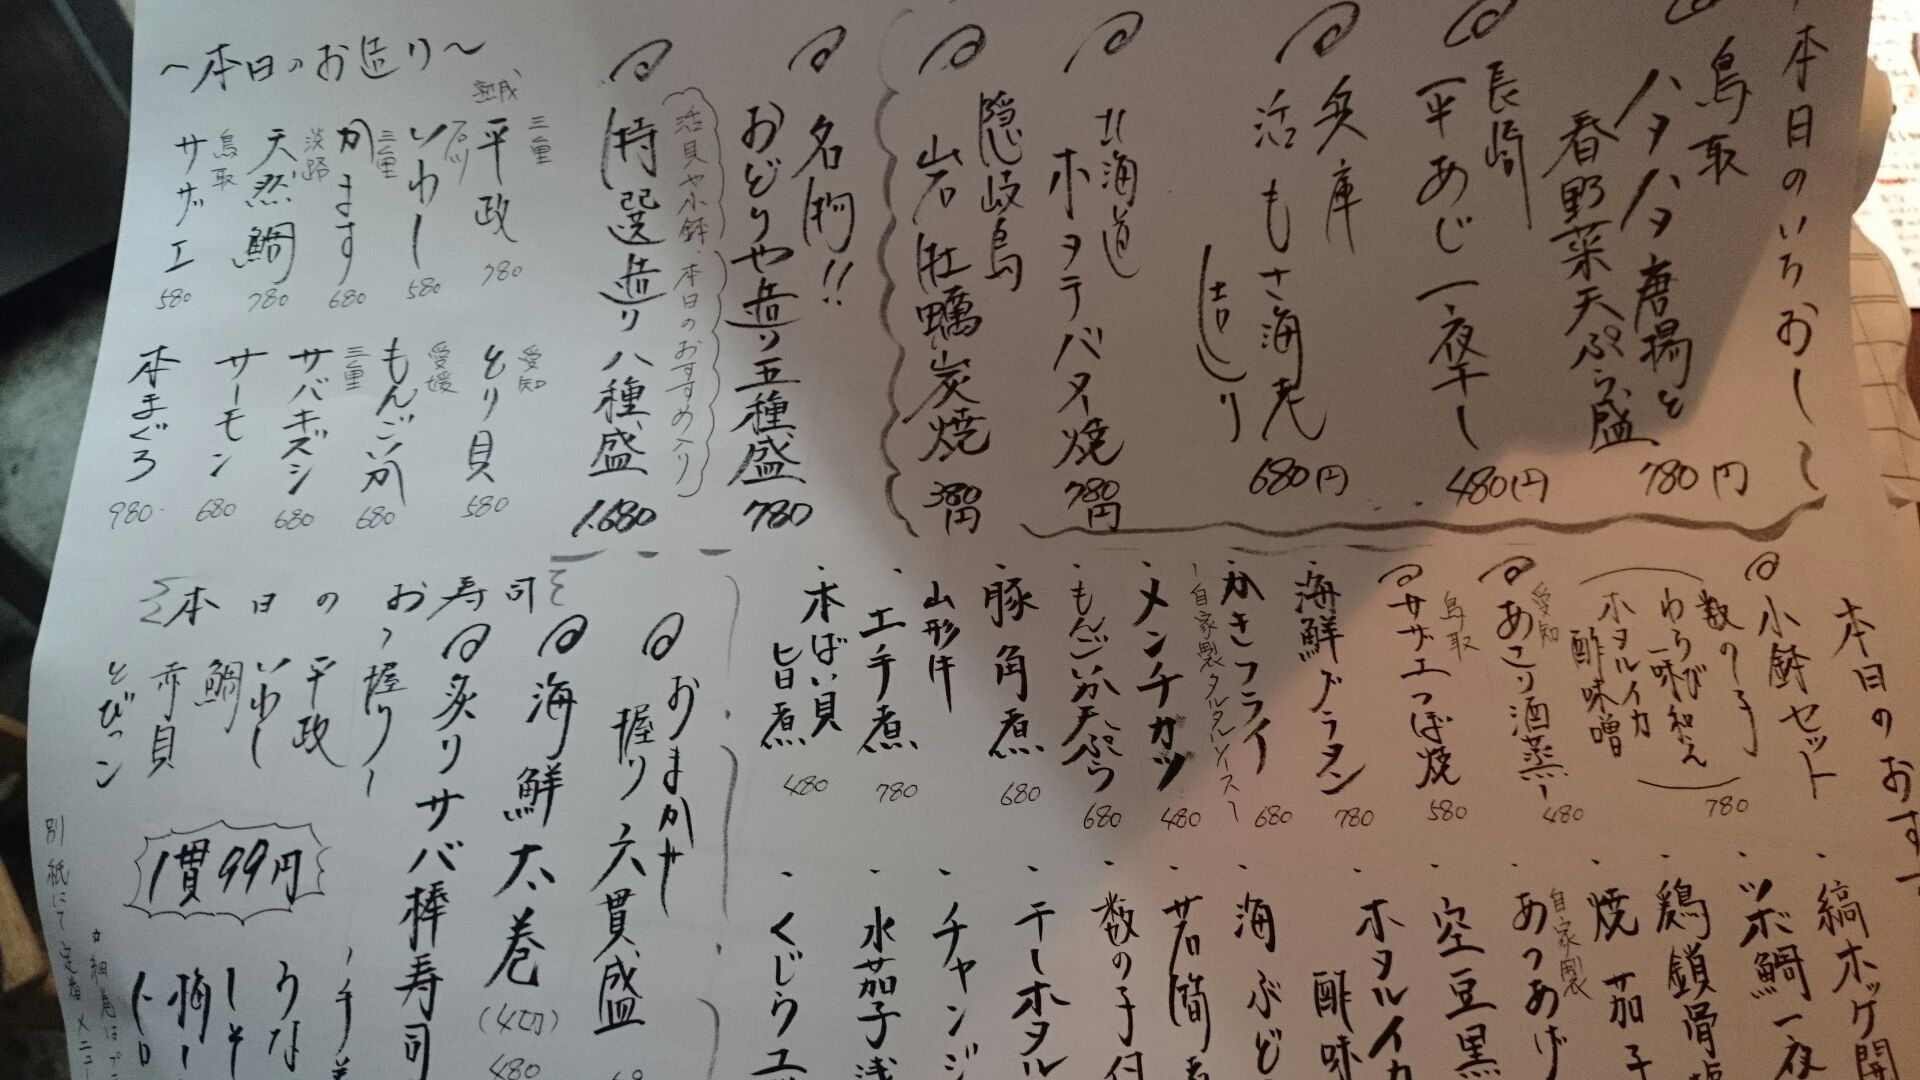 本日のいちおし~
鳥取
ハタハタ唐揚と
春野菜天ぷら盛
780円
長崎
平あじ一夜干し
480円
兵庫
活もさ海老
(造り)
680円
北海道
ホタテバター焼
780円
隠岐島
岩牡蠣炭焼
380円
名物!!
おどりや造り五種盛
780
活貝や小鉢、本日のおすすめ入り
特選造り八種盛
1,680
~本日のお造り~
三重
熟成
平政
780
いわし
580
三重
かます
680
淡路
天然鯛
780
鳥取
サザエ
580
愛知
とり貝
580
愛媛
もんごいか
680
三重
サバキズシ
680
サーモン
680
本まぐろ
980
本日のおす
小鉢セット
数の子
わらび一味和え
ホタルイカ
酢味噌
780
愛知
あさり酒蒸し
480
鳥取
サザエつぼ焼
580
海鮮グラタン
780
かきフライ
自家製タルタルソース
680
メンチカツ
480
もんごいか天ぷら
680
豚角煮
680
山形牛
エ手煮
780
本ばい貝
旨煮
480
縞ホッケ開
ツボ鯛一夜
鶏鎖骨塩
焼茄子
自家製
あつあげ
空豆黒
ホタルイカ
酢味
海ぶど
若筒煮
数の子付
干しホタル
チャンジ
水茄子浅
くじらユ
本日のお寿司
おまかせ
握り六貫盛
海鮮太巻
(4切)
480
炙りサバ棒寿司
、握り
平政
いわし
鯛
赤貝
とびっこ
1貫99円
、手巻
うな
しそ
梅し
トロ
☆細巻はプ
別紙にて定番メニュー